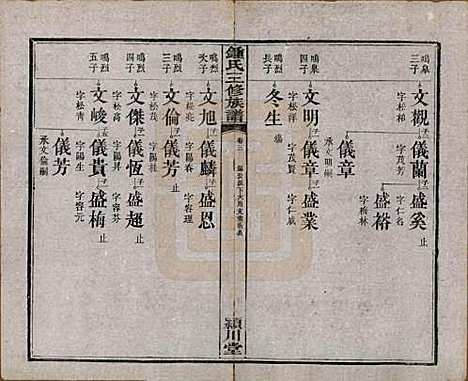 鳴泉
三子
文觀
字松梯
儀蘭
字茂芳
盛奚
止
字仁名
盛裕
字松林
儀章
承文明嗣
鳴泉
四子
文明
字松洋
儀章
字茂賢
盛業
字仁威
鳴烈
長子
冬生
殤
鍾氏三修族譜
卷三
潁川堂
鳴烈
次子
文旭
字松亮
儀麟
盛恩
字容理
鳴烈
三子
文倫
字松茂
儀芳
字陽桂
鳴烈
四子
文傑
字松高
儀恆
字陽昇
盛超
止
字容芬
鳴烈
五子
文峻
字松青
儀貴
字陽生
盛梅
止
字容元
儀芳
承文倫嗣